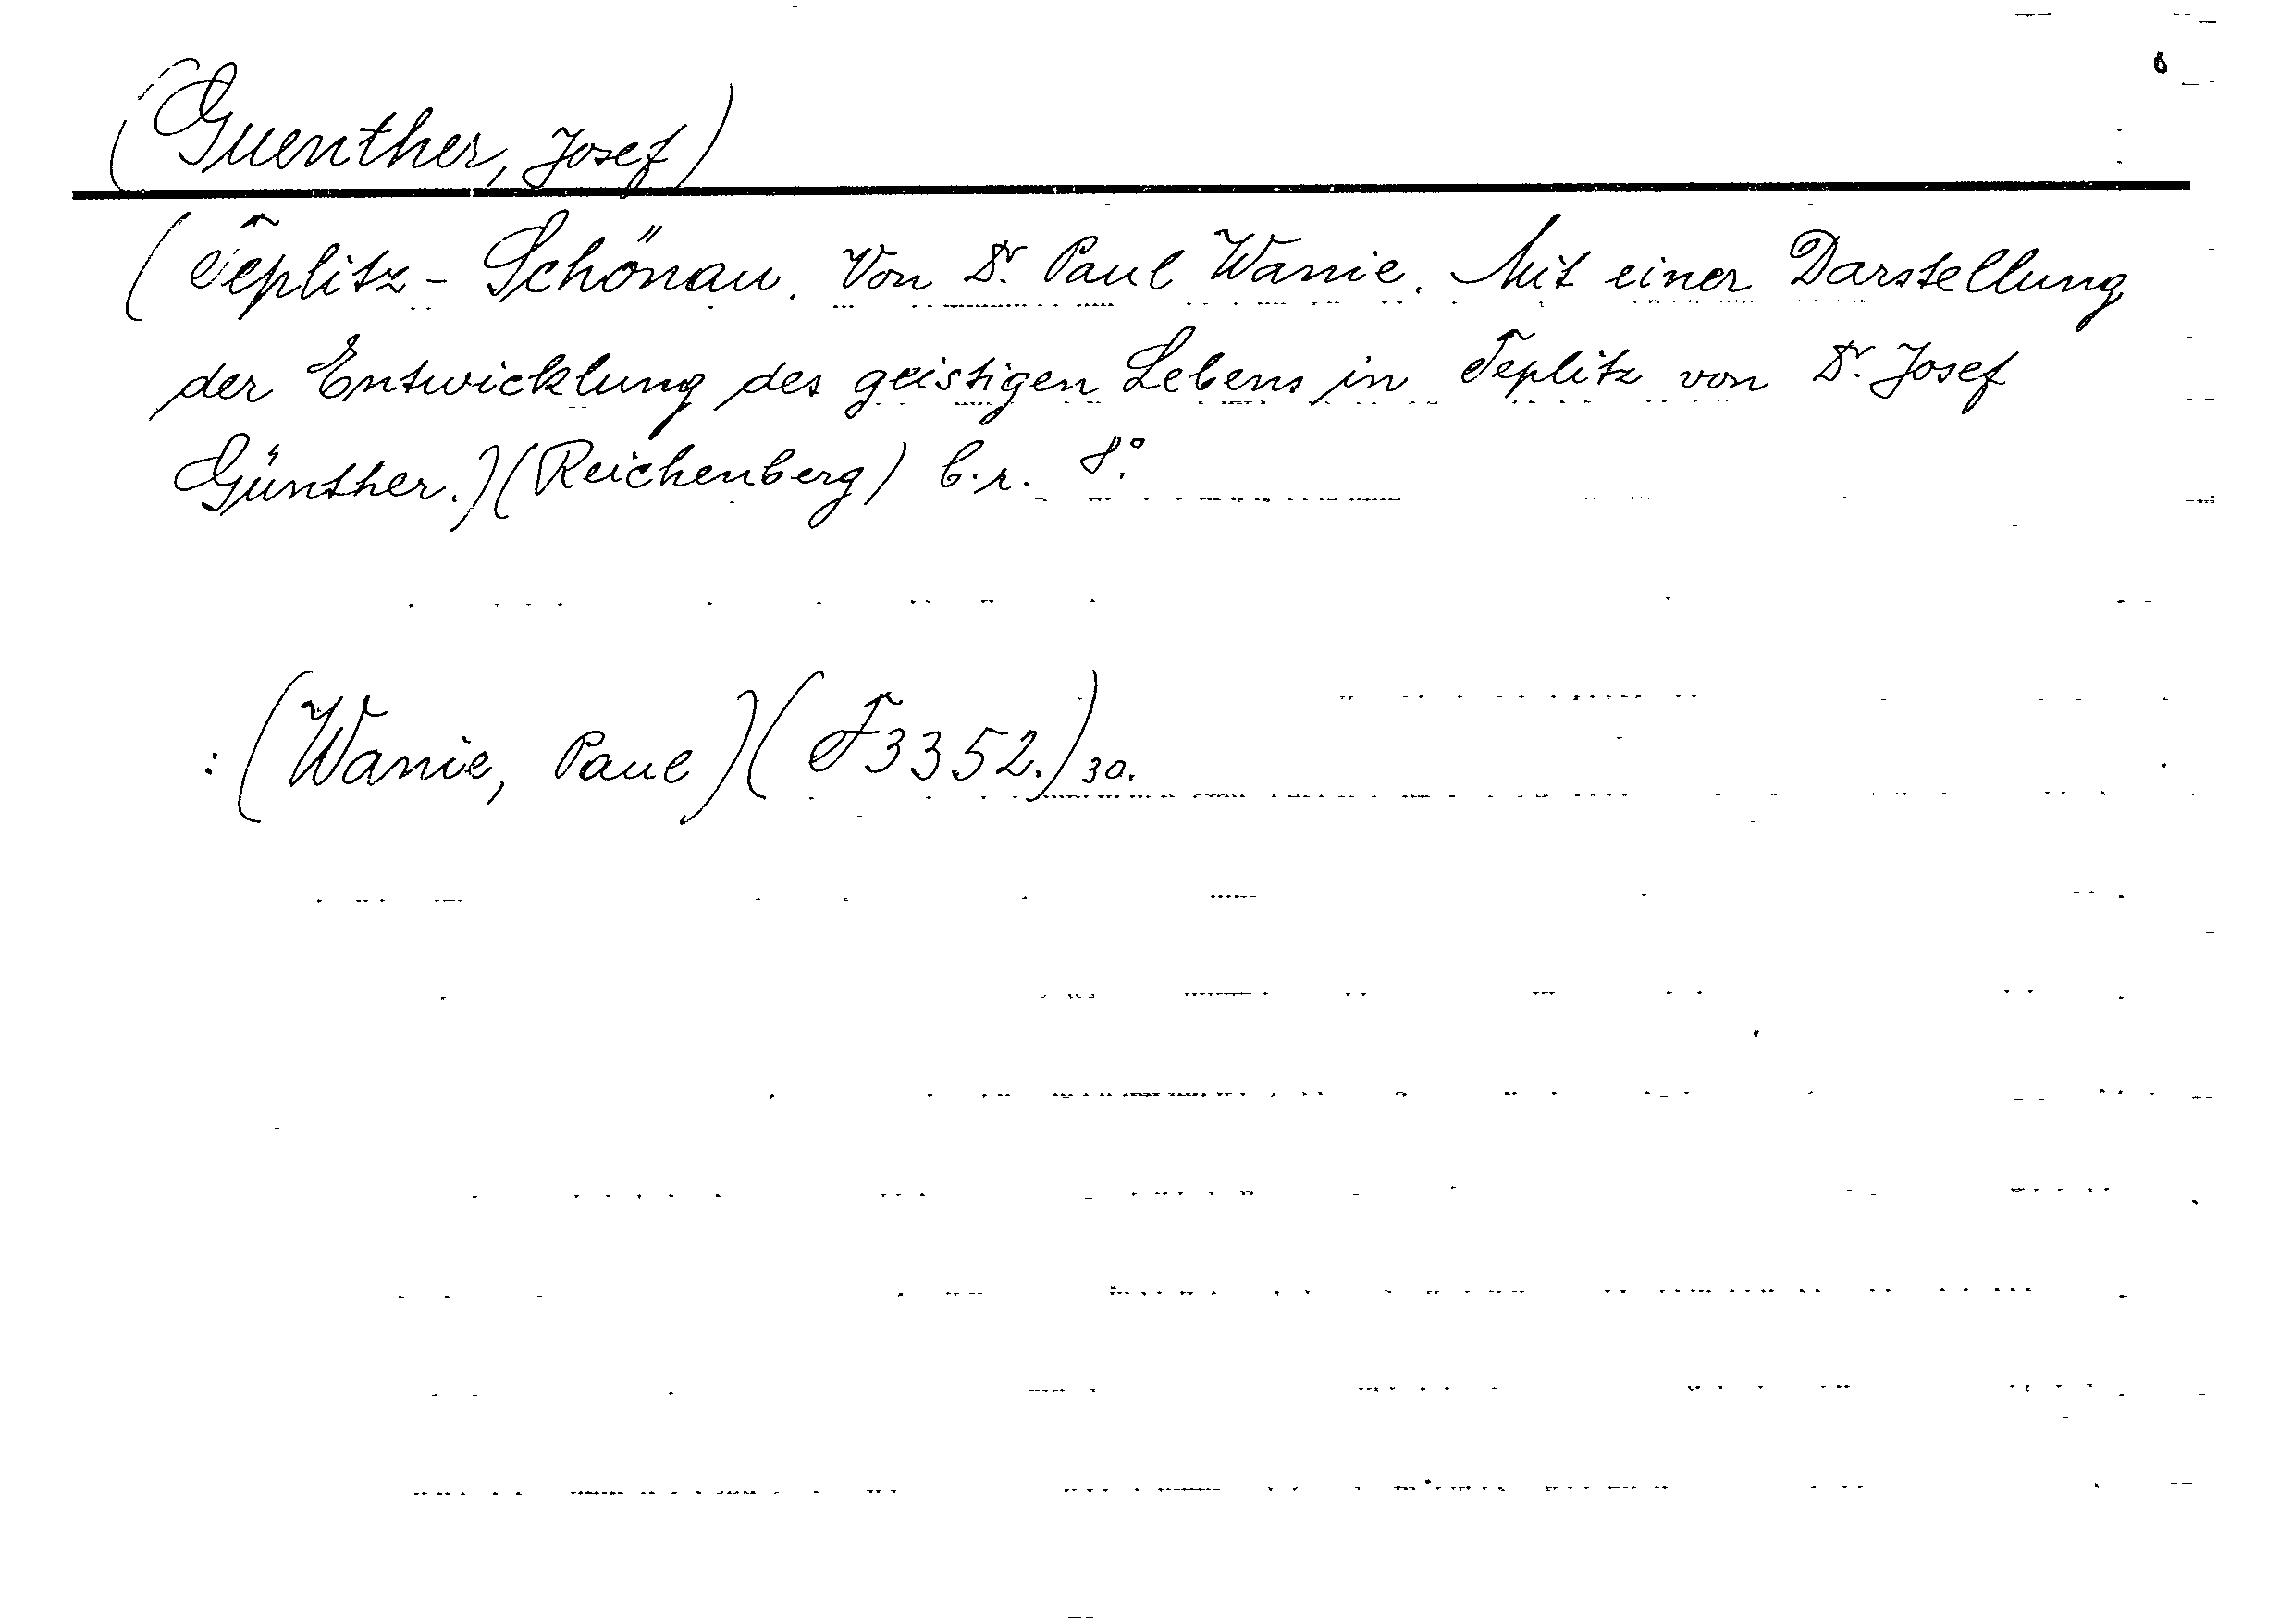 (Guenther, Josef)
(Teplitz - Schönau. Von Dr. Paul Wanie. Mit einer Darstellung
der Entwicklung des geistigen Lebens in Teplitz von Dr. Josef
Günther.) (Reichenberg) b.r. 8°.
: (Wanie, Paul) (F 3352.) 30.